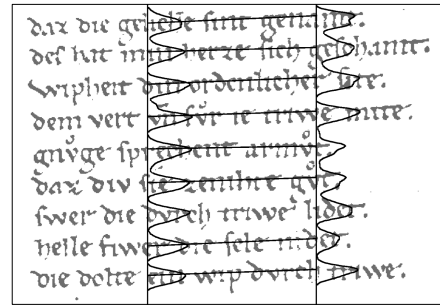 daz die geliche ſint genamt.
deſ hat min herze ſich geſchamt.
wipheit din ordenlicher ſite.
dem vert vn̄ fvͦr ie triwe mite.
gnvͦge ſprechent armvͦt.
daz div ſie zenihte gvͦt.
ſwer die dvrch triwe lidet.
helle fiwer die ſele midet.
die dolte ein wip dvrch triwe.